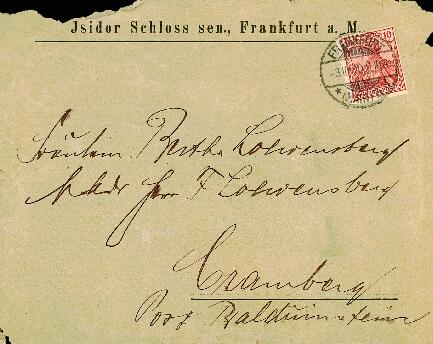 Jsidor Schloss sen., Frankfurt a. M.
10
FRANKFURT
Fräulein Bertha Loewensberg
Adr Herr F Loewensberg
Cramberg
Post Balduinstein